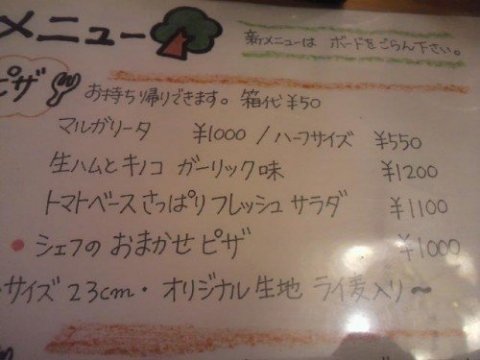 メニュー
新メニューは ボードをごらん下さい。
ピザ
お持ち帰りできます。箱代¥50
マルガリータ ¥1000 / ハーフサイズ ¥550
生ハムとキノコ ガーリック味 ¥1200
トマトベースさっぱりフレッシュサラダ ¥1100
• シェフの おまかせ ピザ ¥1000
サイズ 23cm・オリジナル生地 ライ麦入り〜